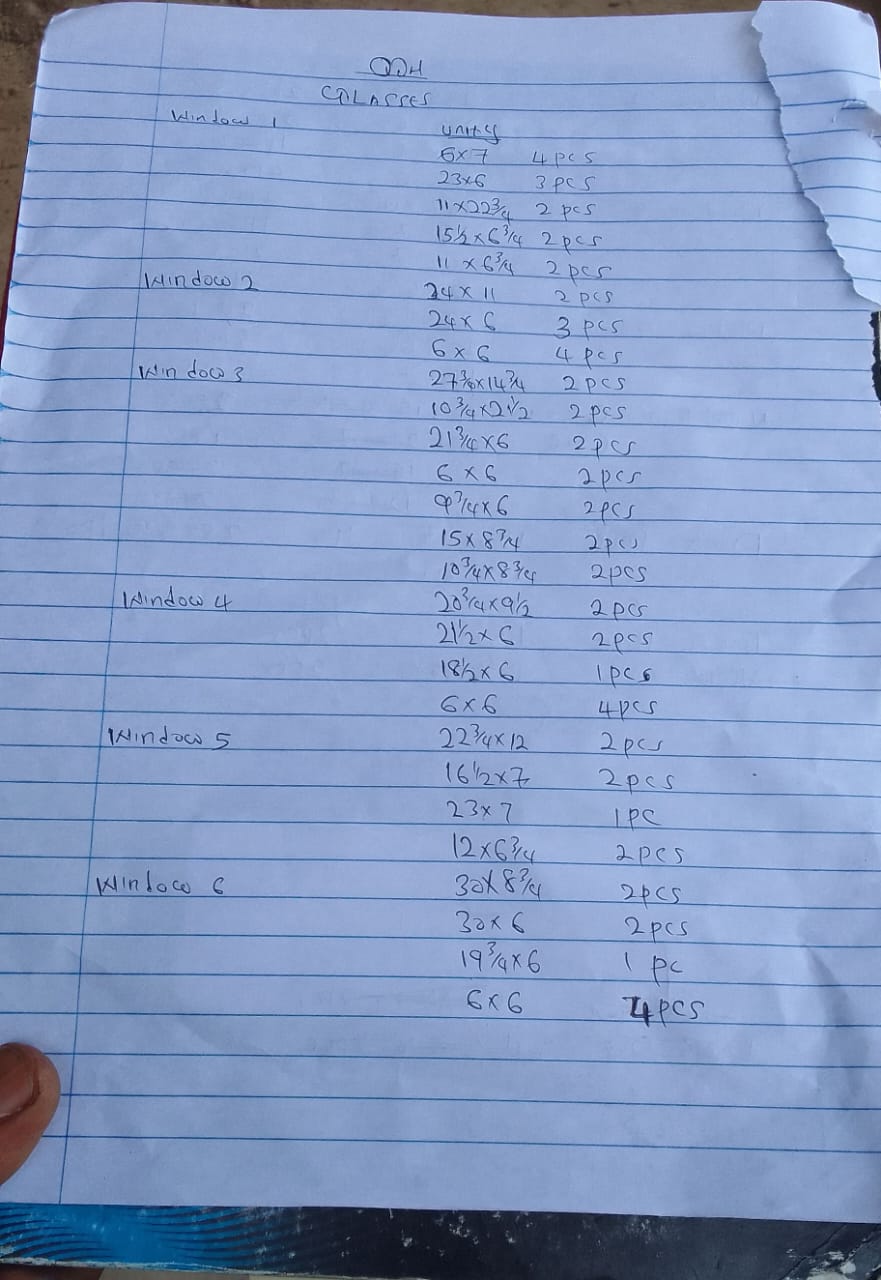 ODH
GLASSES
Window 1 units
6x7 4pcs
23x6 3pcs
11x22¾ 2pcs
15½x6¾ 2pcs
11x6¾ 2pcs
Window 2 24x11 2pcs
24x6 3pcs
6x6 4pcs
Window 3 27¾x14¾ 2pcs
10¾x21½ 2pcs
21¾x6 2pcs
6x6 2pcs
9¾x6 2pcs
15x8¾ 2pcs
10¾x8¾ 2pcs
Window 4 20¾x9½ 2pcs
21½x6 2pcs
18½x6 1pcs
6x6 4pcs
Window 5 22¾x12 2pcs
16½x7 2pcs
23x7 1pc
12x6¾ 2pcs
Window 6 30x8¾ 2pcs
30x6 2pcs
19¾x6 1pc
6x6 4pcs